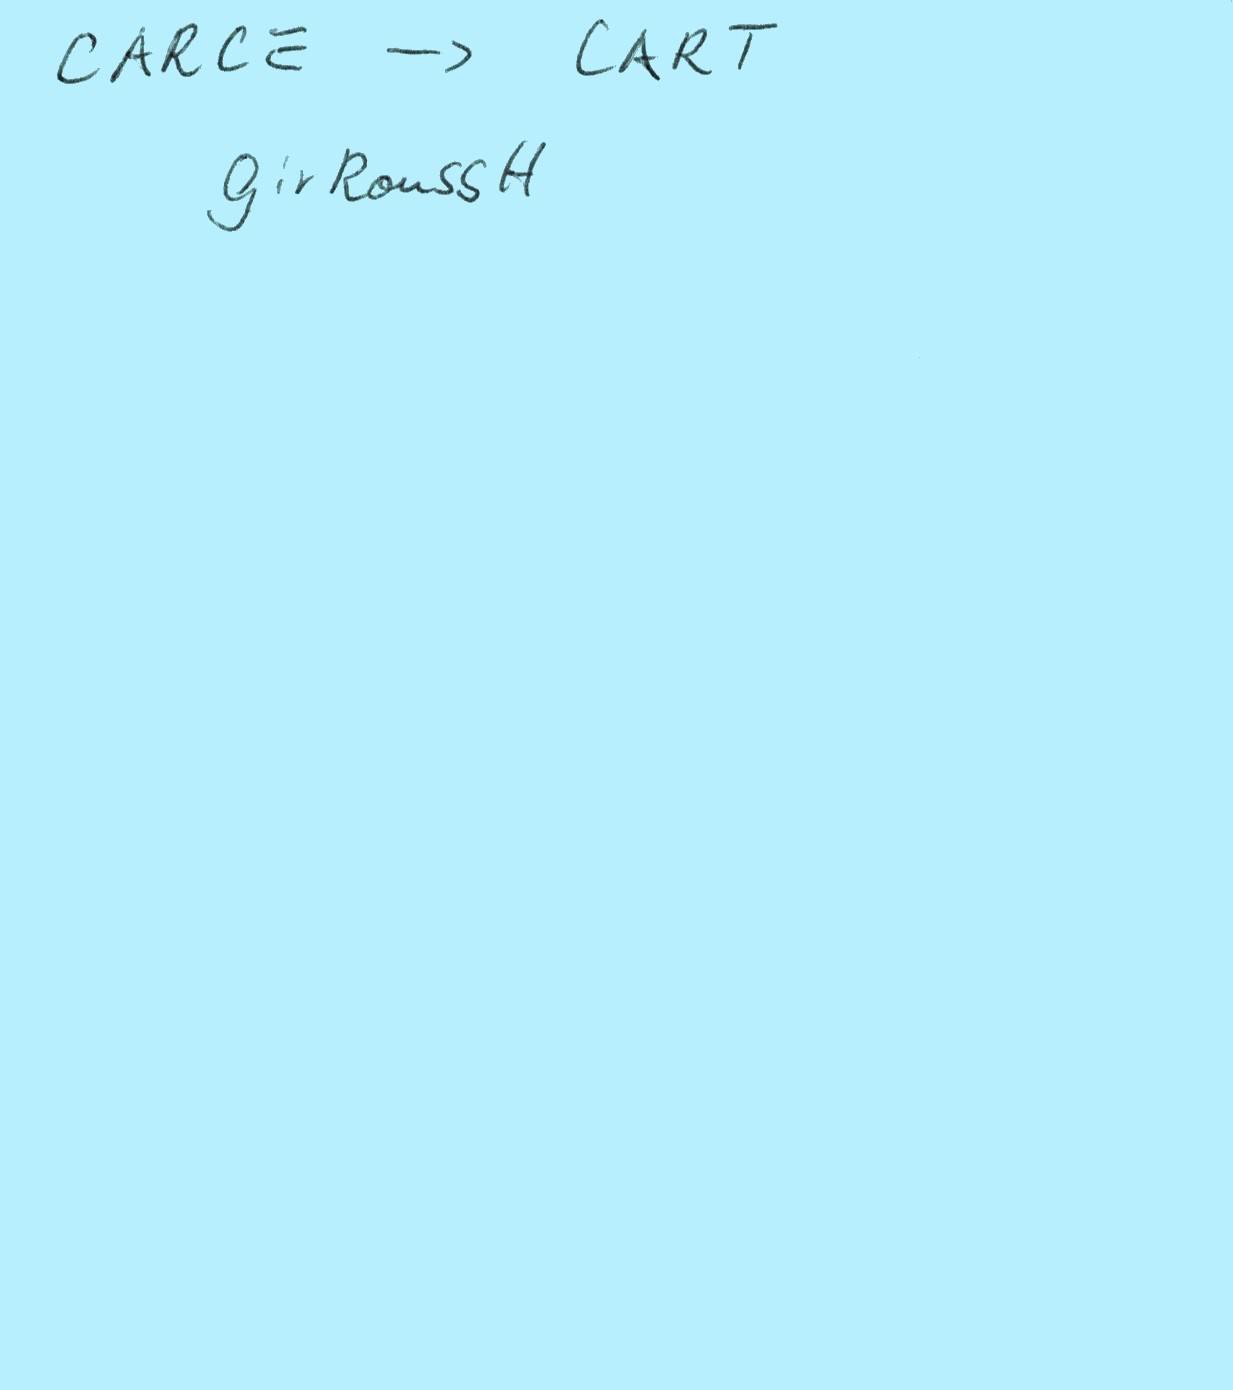 CARCE -> CART
GirRoussH